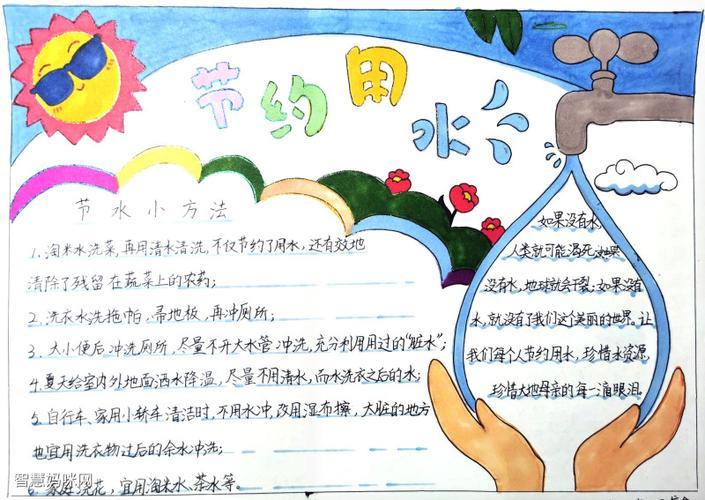 节约用水
节水小方法
1、淘米水洗菜，再用清水清洗，不仅节约了用水，还有效地
清除了残留在蔬菜上的农药；
2、洗衣水洗拖帕、帚地板，再冲厕所；
3、大小便后冲洗厕所，尽量不开大水管冲洗，充分利用用过的“脏水”；
4、夏天给室内外地面洒水降温，尽量不用清水，而水洗衣之后的水；
5、自行车、家用小轿车清洁时，不用水冲，改用湿布擦，大脏的地方
也宜用洗衣物过后的余水冲洗；
6、家庭浇花，宜用淘米水、茶水等。
如果没有水，
人类就可能渴死，如果
没有水，地球就会干裂；如果没有
水，就没有了我们这个美丽的世界。让
我们每个人节约用水，珍惜水资源，
珍惜大地母亲的每一滴眼泪。
智慧妈咪网